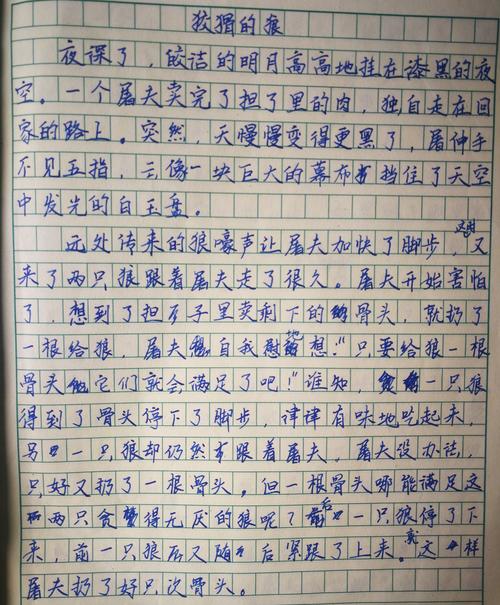 狡猾的狼
夜深了，皎洁的明月高高地挂在漆黑的夜
空。一个屠夫卖完了担了里的肉，独自走在回
家的路上。突然，天慢慢变得更黑了，屠伸手
不见五指，云像一块巨大的幕布挡住了天空
中发光的白玉盘。
远处传来的狼嚎声让屠夫加快了脚步，这时又
来了两只狼跟着屠夫走了很久。屠夫开始害怕
了，想到了担子里卖剩下的骨头，就扔了
一根给狼，屠夫自我慰地想："只要给狼一根
骨头它们就会满足了吧！"谁知，一只狼
得到了骨头停下了脚步，津津有味地吃起来，
另一只狼却仍然跟着屠夫，屠夫没办法，
只好又扔了一根骨头。但一根骨头哪能满足这
两只贪得无厌的狼呢？后一只狼停了下
来，前一只狼后又随后紧跟了上来。就这样
屠夫扔了好几次骨头。